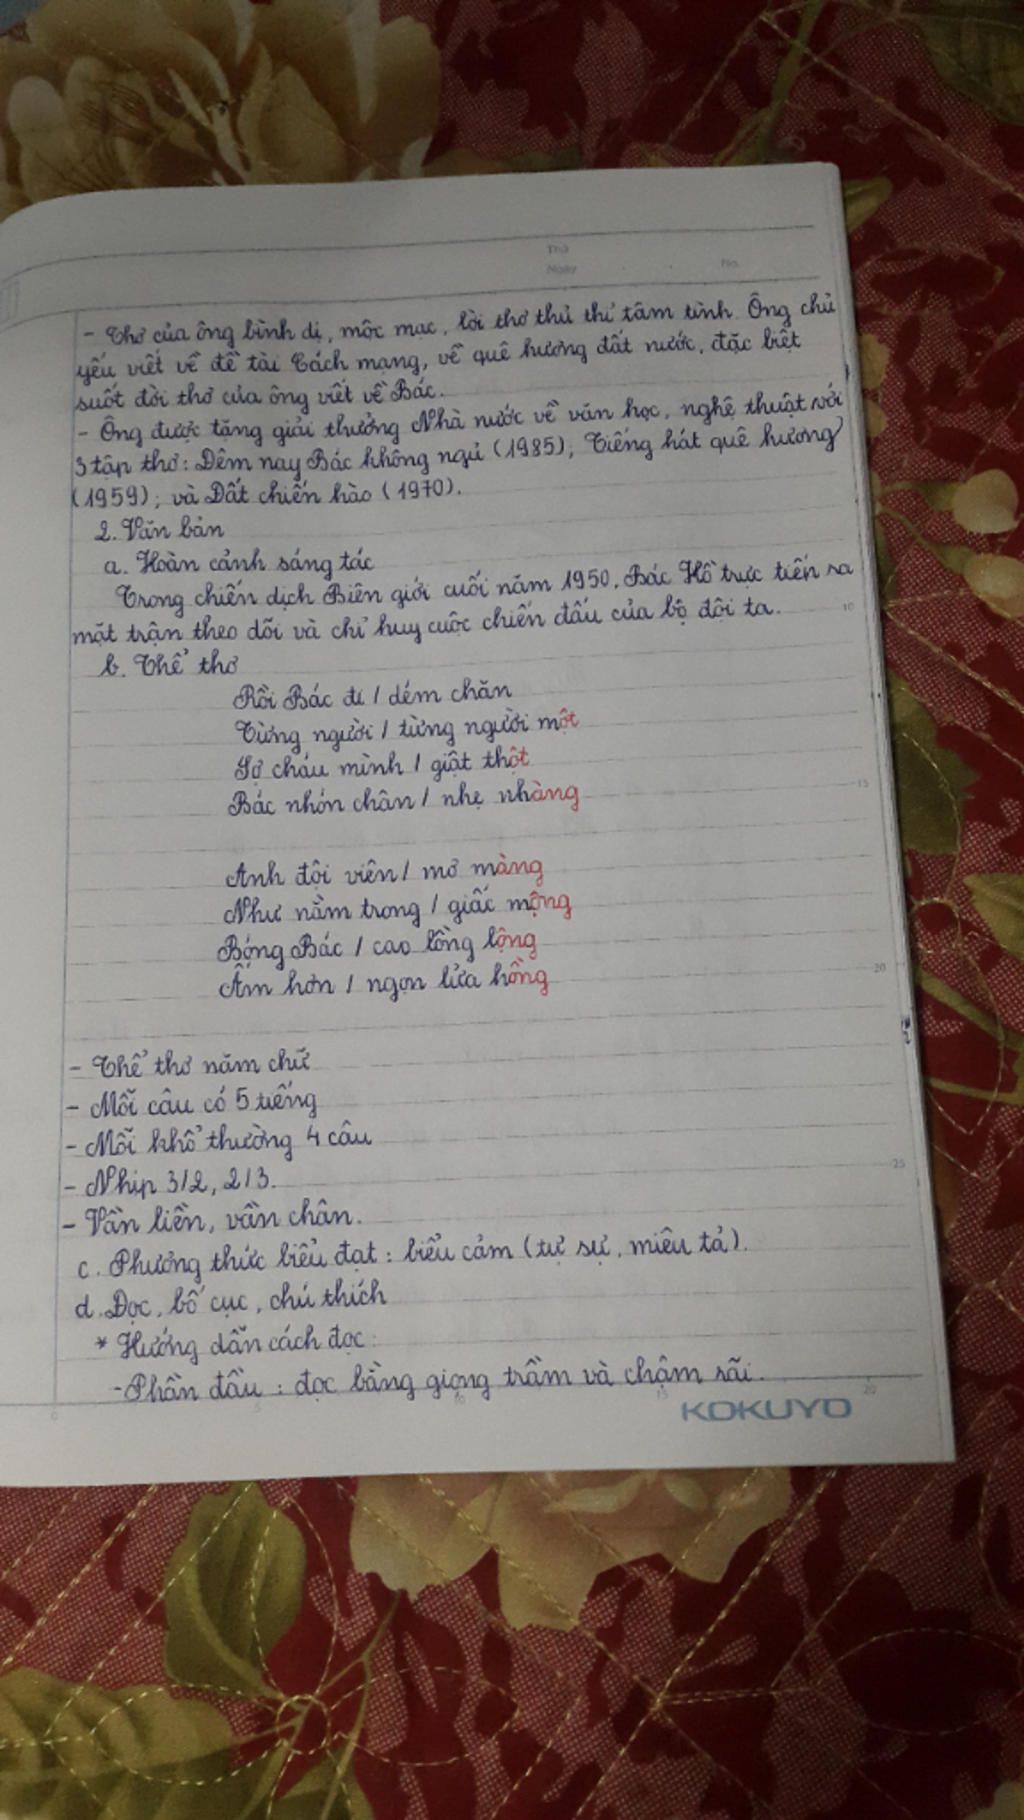 Thứ
Ngày . . No.
- Thơ của ông bình dị, mộc mạc, lời thơ thủ thỉ tâm tình. Ông chủ
yếu viết về đề tài Cách mạng, về quê hương đất nước, đặc biệt
suốt đời thơ của ông viết về Bác.
- Ông được tặng giải thưởng Nhà nước về văn học, nghệ thuật với
3 tập thơ: Đêm nay Bác không ngủ (1985); Tiếng hát quê hương
(1959); và Đất chiến hào (1970).
2. Văn bản
a. Hoàn cảnh sáng tác
Trong chiến dịch Biên giới cuối năm 1950, Bác Hồ trực tiến ra
mặt trận theo dõi và chỉ huy cuộc chiến đấu của bộ đội ta.
10
b. Thể thơ
Rồi Bác đi / dém chăn
Từng người / từng người một
Sợ cháu mình / giật thột
Bác nhón chân / nhẹ nhàng
15
Anh đội viên / mơ màng
Như nằm trong / giấc mộng
Bóng Bác / cao lồng lộng
Ấm hơn / ngọn lửa hồng
20
- Thể thơ năm chữ
- Mỗi câu có 5 tiếng
- Mỗi khổ thường 4 câu
- Nhịp 3/2, 2/3.
25
- Vần liền, vần chân.
c. Phương thức biểu đạt: biểu cảm (tự sự, miêu tả).
d. Đọc, bố cục, chú thích
* Hướng dẫn cách đọc:
- Phần đầu: đọc bằng giọng trầm và chậm rãi.
0 5 10 15 20
KOKUYO